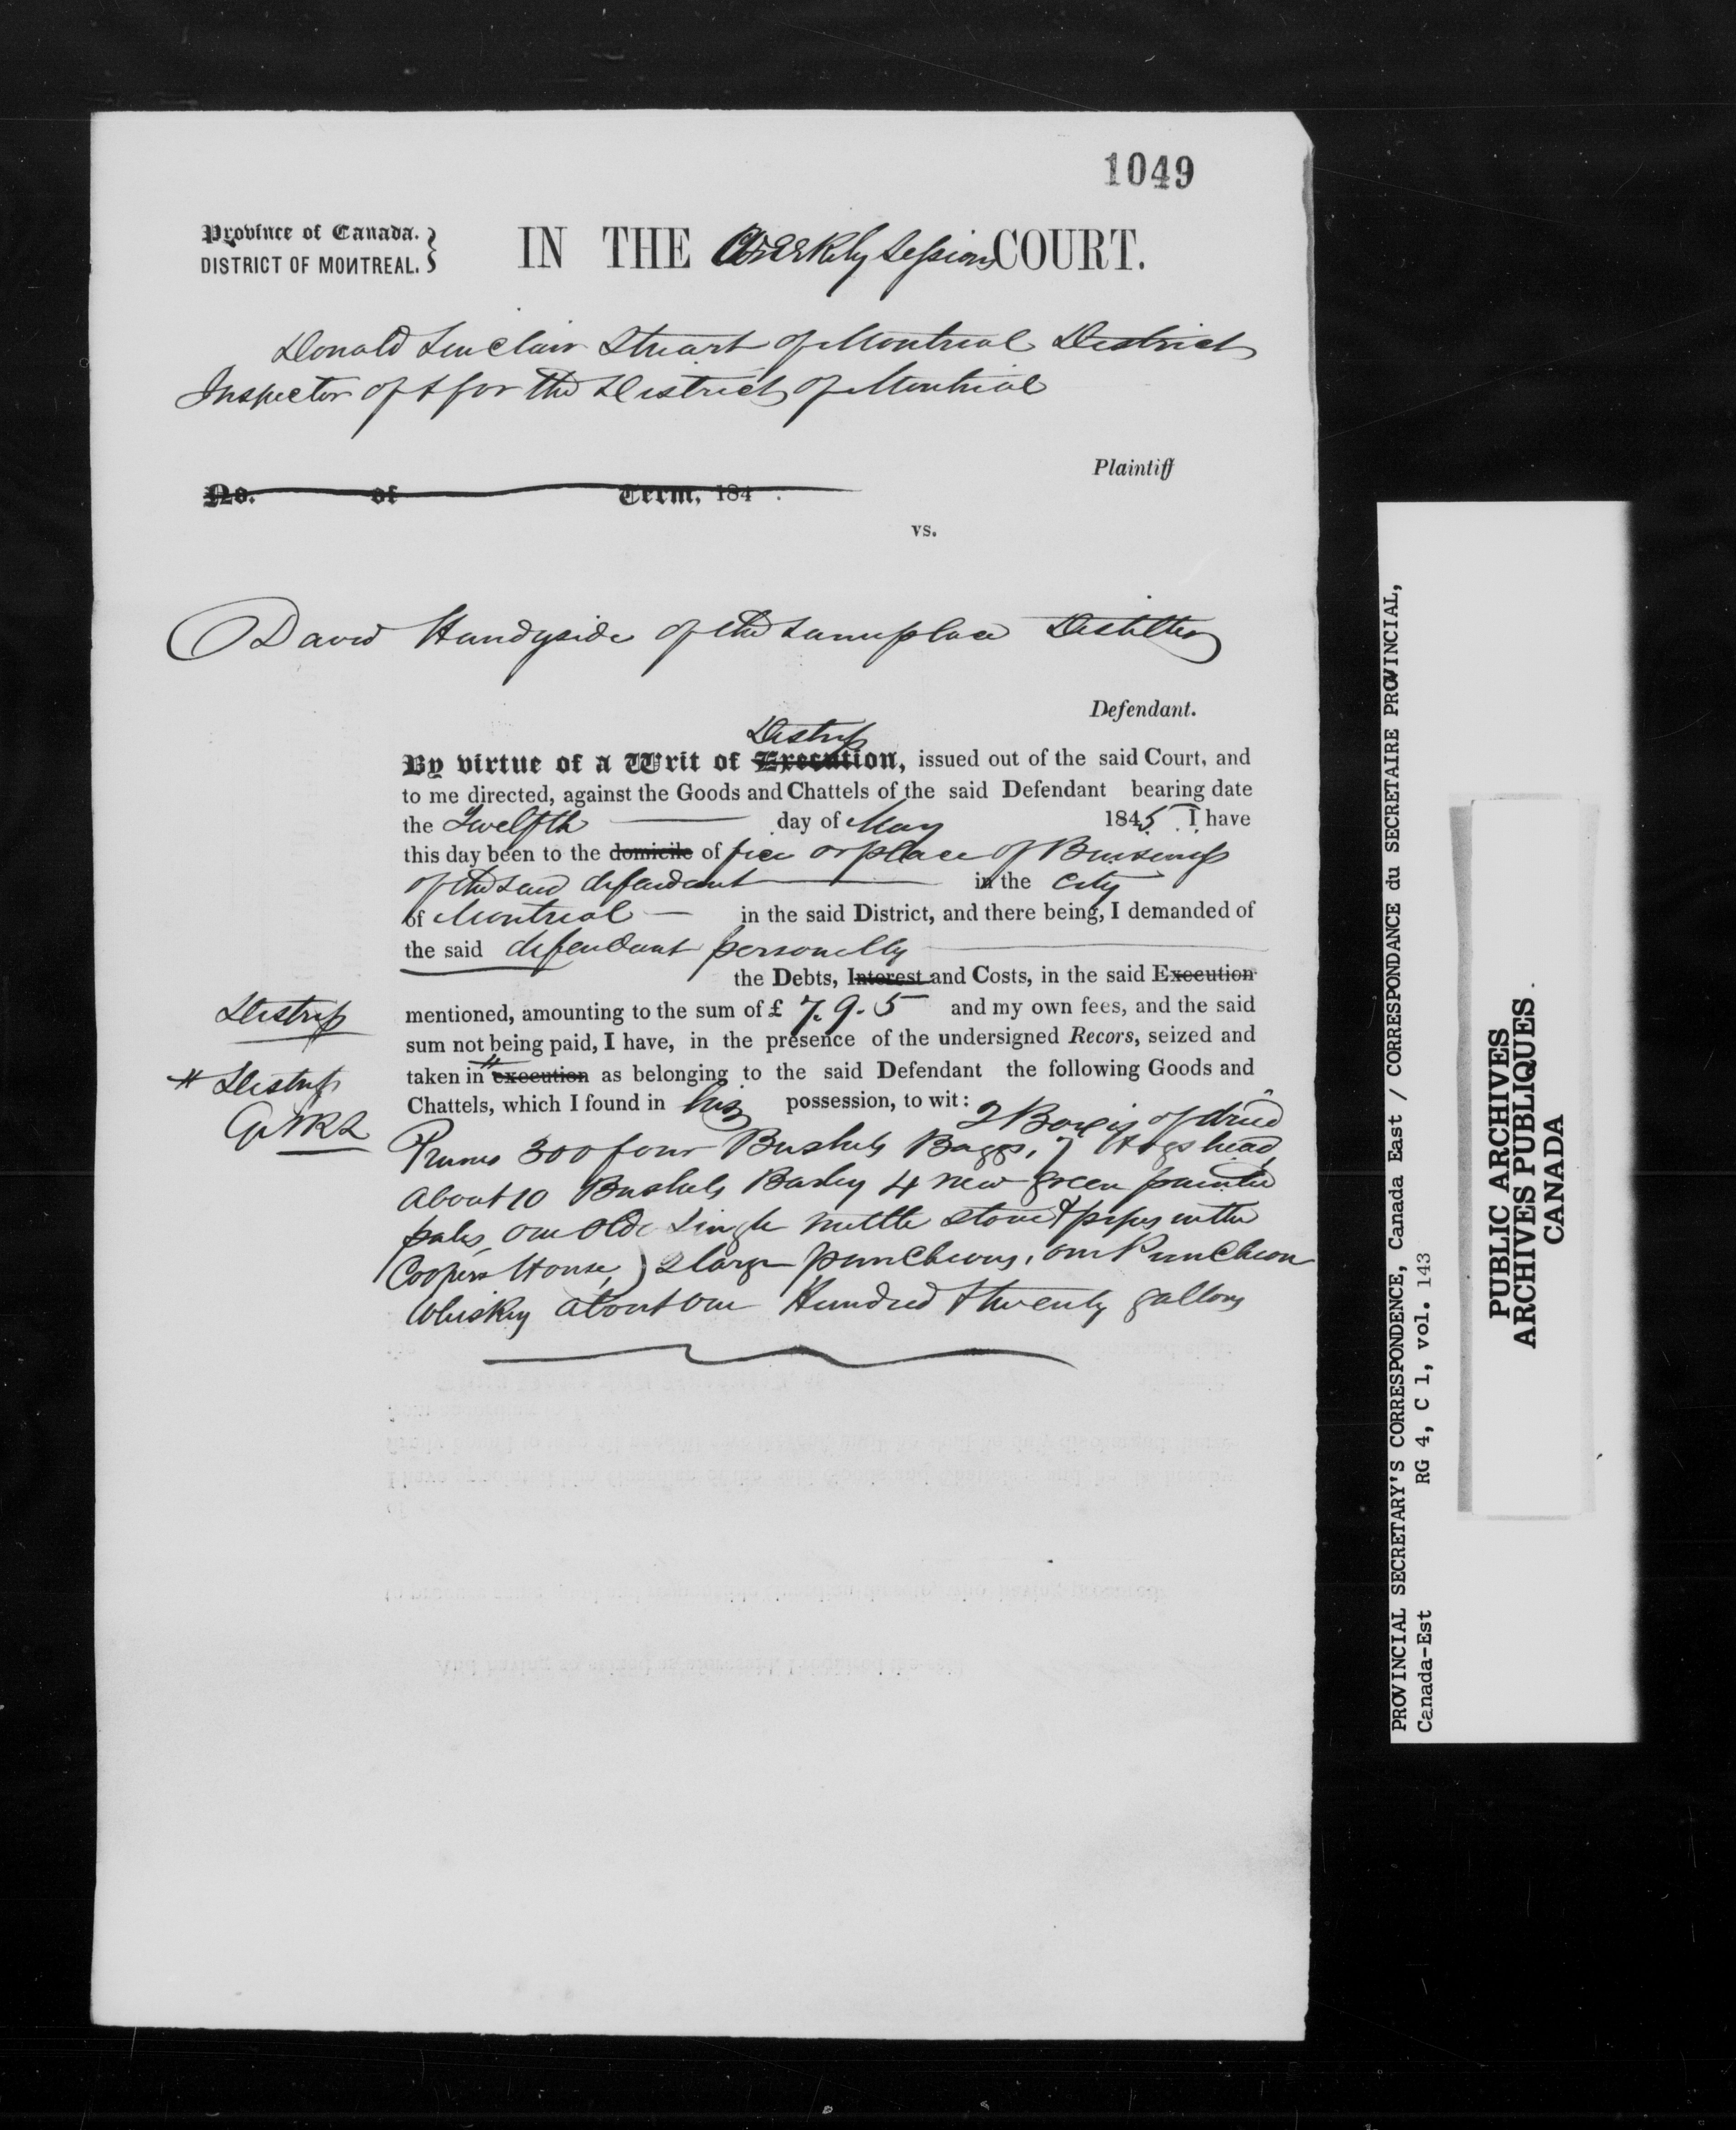 1049
Province of Canada.
DISTRICT OF MONTREAL.
IN THE Weekly Sessions COURT.
Donald Sinclair Stuart of Montreal District
Inspector of & for the District of Montreal
Plaintiff
No. of Term, 184 .
vs.
David Handyside of the same place Distiller
Defendant.
Distress
By virtue of a Writ of Execution, issued out of the said Court, and
to me directed, against the Goods and Chattels of the said Defendant bearing date
the Twelfth day of May 1845. I have
this day been to the domicile of fice or place of Business
of the said defendant in the City
of Montreal in the said District, and there being, I demanded of
the said defendant personelly
the Debts, Interest and Costs, in the said Execution
Distress
mentioned, amounting to the sum of £ 7. 9. 5 and my own fees, and the said
sum not being paid, I have, in the presence of the undersigned Recors, seized and
# Distress
taken in # execution as belonging to the said Defendant the following Goods and
Chattels, which I found in his possession, to wit: 2 Boxes of dried
Prunes 300 four Bushels Baggs, 7 Hogshead,
about 10 Bushels Barley 4 new green painted
pales, one old Single mettle stove & pipes in the
Coopers House,) 2 large puncheons, one Puncheon
Whiskey about one Hundred & twenty gallons
PROVINCIAL SECRETARY'S CORRESPONDENCE, Canada East / CORRESPONDANCE du SECRETAIRE PROVINCIAL,
Canada-Est RG 4, C 1, vol. 143
PUBLIC ARCHIVES
ARCHIVES PUBLIQUES
CANADA